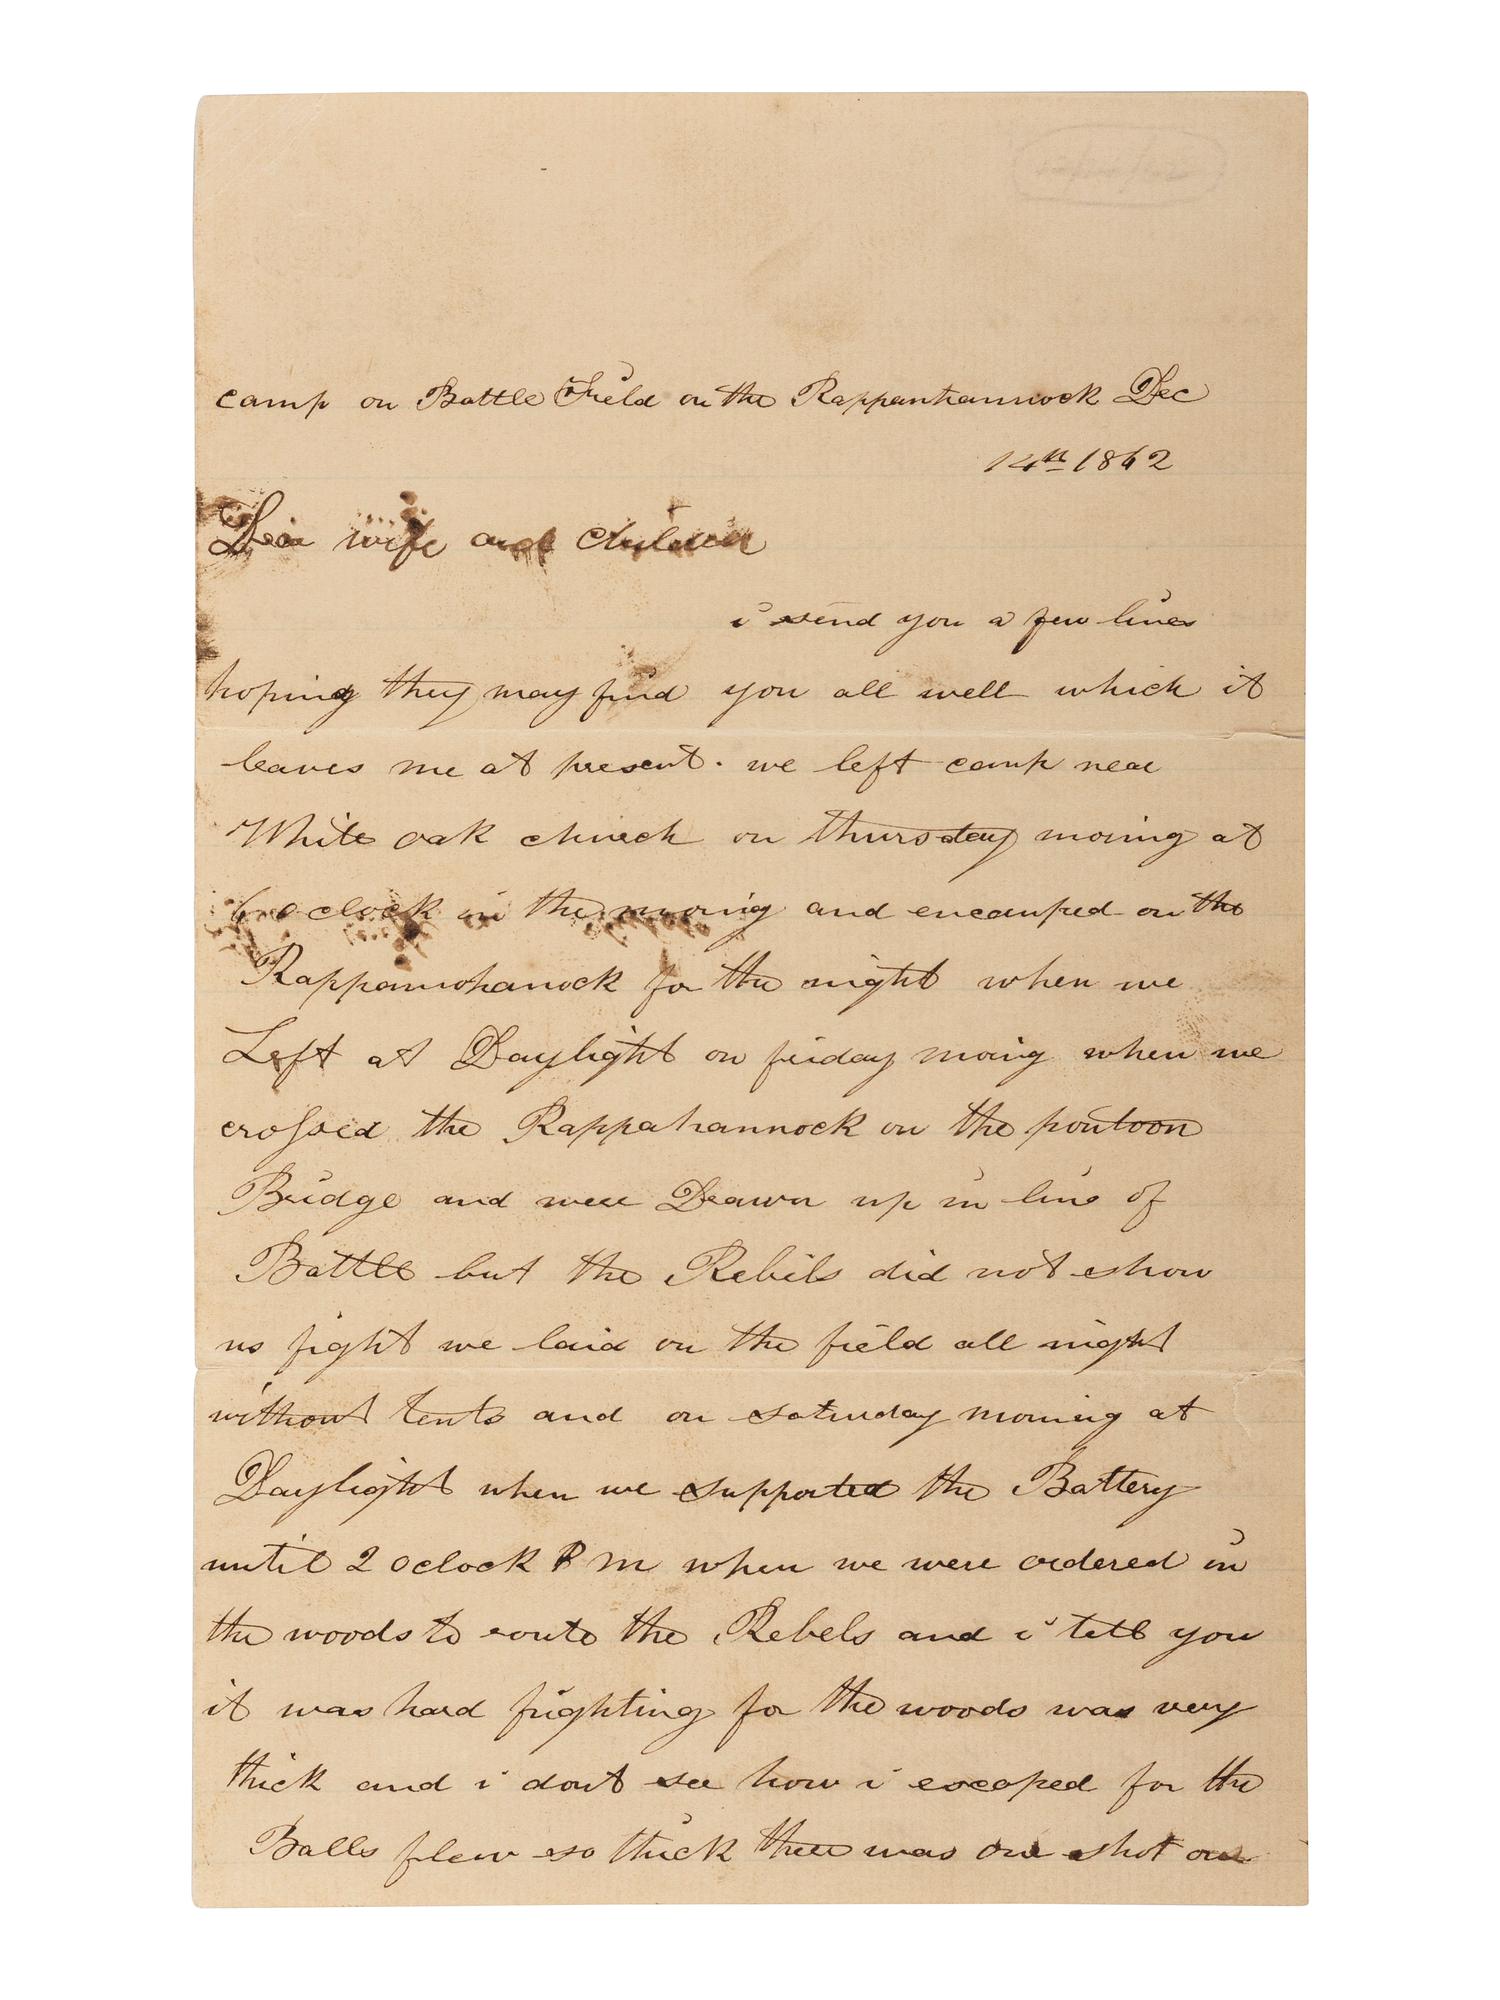 camp on Battle Field on the Rappanhannock Dec
14th 1862
Dear wife and children
i send you a few lines
hoping they may find you all well which it
leaves me at present. we left camp near
White oak church on thursday moring at
6 o clock in the moring and encamped on the
Rappannohanock for the night when we
Left at Daylight on friday moring when we
crossed the Rappahannock on the pontoon
Bridge and were Drawn up in line of
Battle but the Rebils did not show
us fight we laid on the field all night
without tents and on saturday morning at
Daylight when we supported the Battery
until 2 oclock P m when we were ordered in
the woods to route the Rebels and i tell you
it was hard frighting for the woods was very
thick and i dont see how i escaped for the
Balls flew so thick there was one shot on